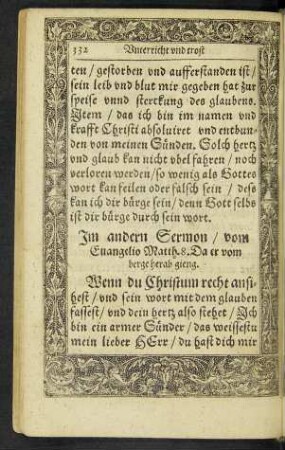 332 Vnterricht vnd trost
ten / gestorben vnd aufferstanden ist /
sein leib vnd blut mir gegeben hat zur
speise vnnd sterckung des glaubens.
Item / das ich bin im namen vnd
krafft Christi absoluiret vnd entbun-
den von meinen Sünden. Solch hertz
vnd glaub kan nicht vbel fahren / noch
verloren werden / so wenig als Gottes
wort kan feilen oder falsch sein / dess
kan ich dir bürge sein / denn Gott selbs
ist dir bürge durch sein wort.
Im andern Sermon / vom
Euangelio Matth. 8. Da er vom
berge herab gieng.
Wenn du Christum recht ansi-
hest / vnd sein wort mit dem glauben
fassest / vnd dein hertz also stehet / Ich
bin ein armer Sünder / das weissestu
mein lieber HErr / du hast dich mir